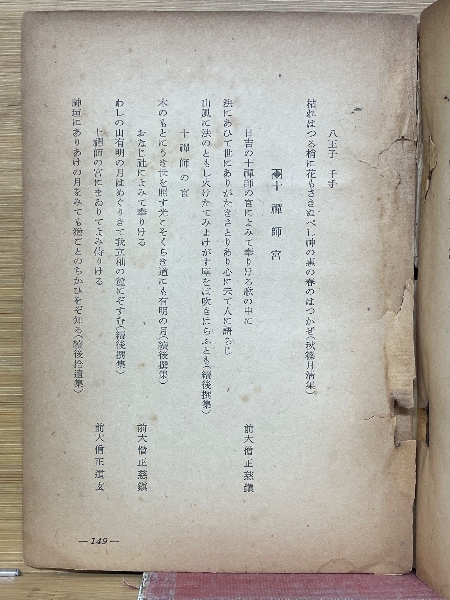 八王子 千手
枯れはつる梢に花もさきぬべし神の恵の春のはつかぜ(秋篠月清集)
十禪師宮
日吉の十禪師の宮によみて奉りける歌の中に
前大僧正慈鎭
法にあひて世にありがたきさとりあり心に示て人に語らじ
山風に法のともし火けたでみよけがす塵をば吹きはらふとも(續後撰集)
十禪師の宮
木のもとにうき世を照す光こそくらき道にも有明の月(續後撰集)
おなじ社によみて奉りける
前大僧正慈鎭
わしの山有明の月はめぐりきて我立杣の麓にぞすむ(續後撰集)
十禪師の宮にまゐりてよみ侍りける
前大僧正道玄
神垣にありあけの月をみても猶ごとのちかひをぞ知る(續後拾遺集)
—149—